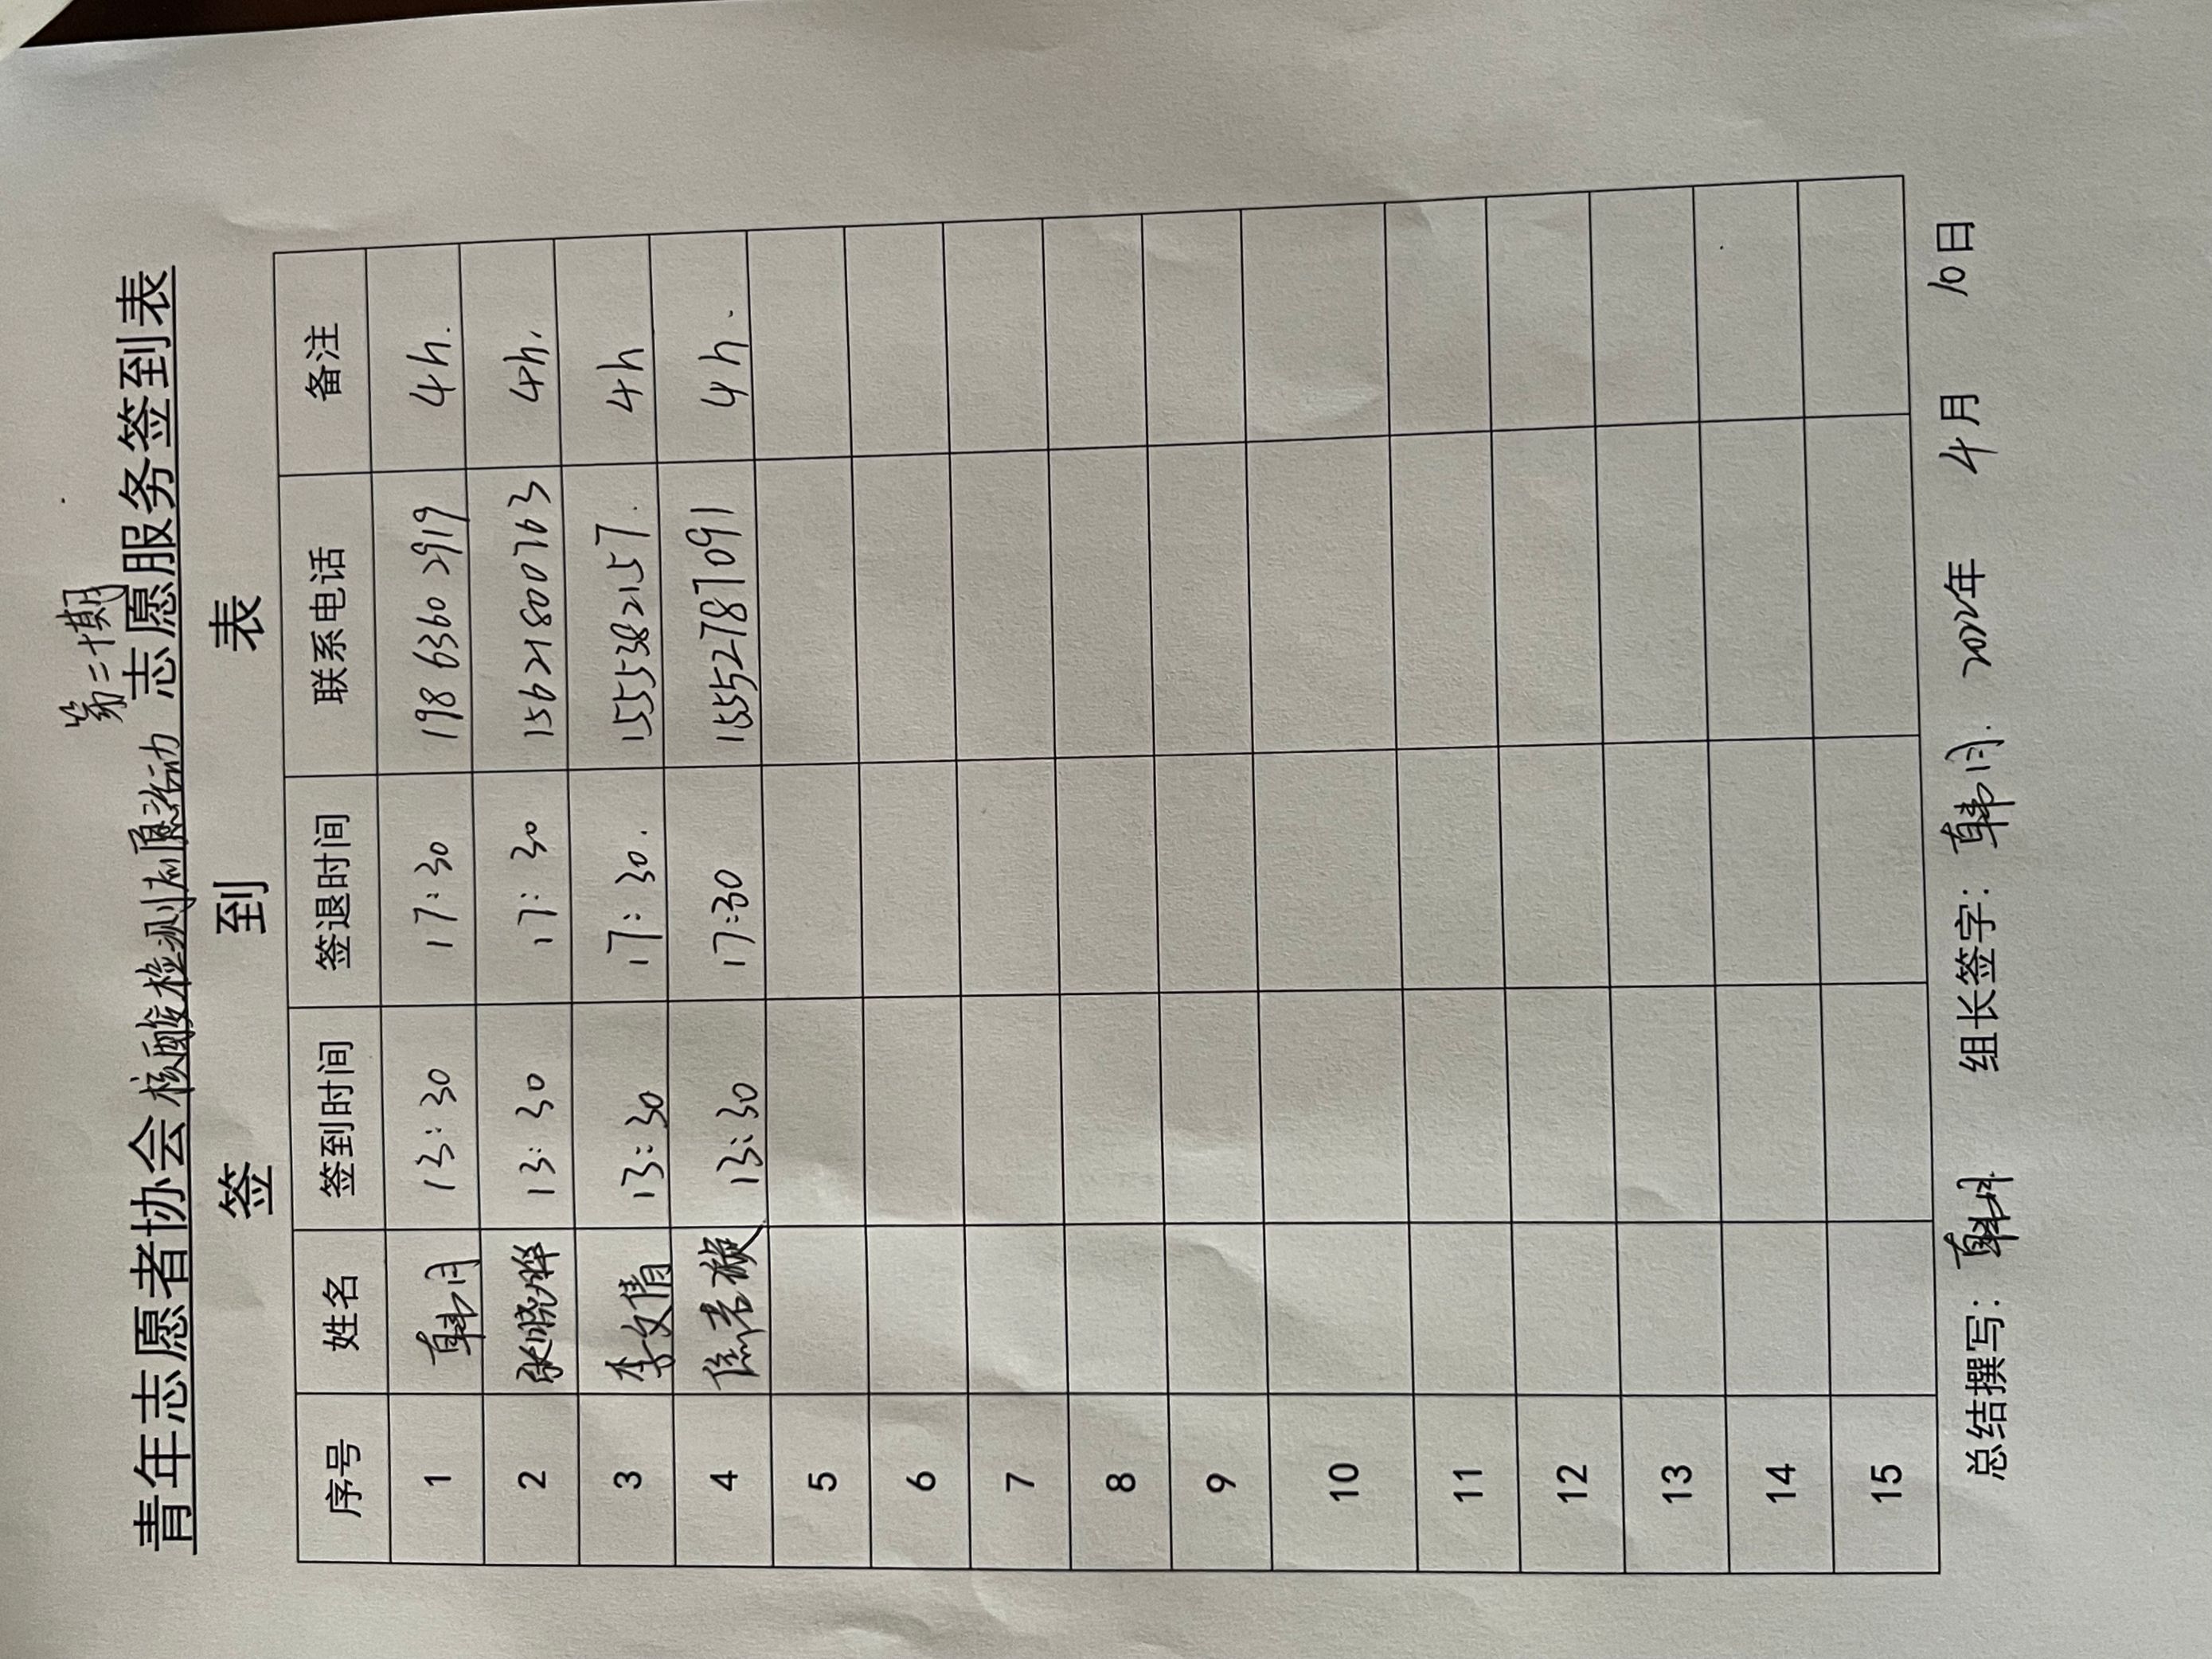 第二十期
青年志愿者协会核酸检测志愿活动 志愿服务签到表
签 到 表
序号 姓名 签到时间 签退时间 联系电话 备注
1 韩月 13:30 17:30 198 6360 2919 4h.
2 张晓 13:30 17:30 15621800763 4h.
3 李文倩 13:30 17:30. 15553821257. 4h
4 13:30 17:30 15527871091 4h.
5
6
7
8
9
10
11
12
13
14
15
总结撰写: 韩月 组长签字: 韩月. 2022年 4月 10日